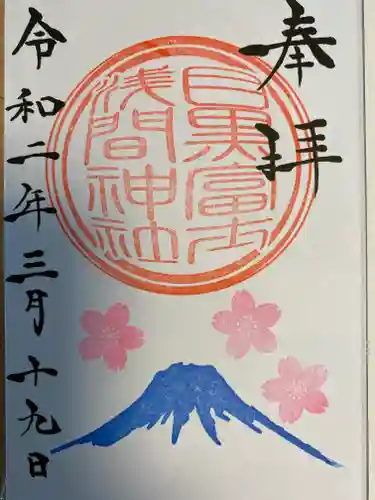 奉拝
目黒富士
浅間神社
令和二年三月十九日